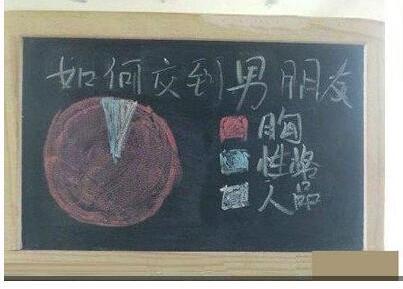 如何交到男朋友
胸
性格
人品